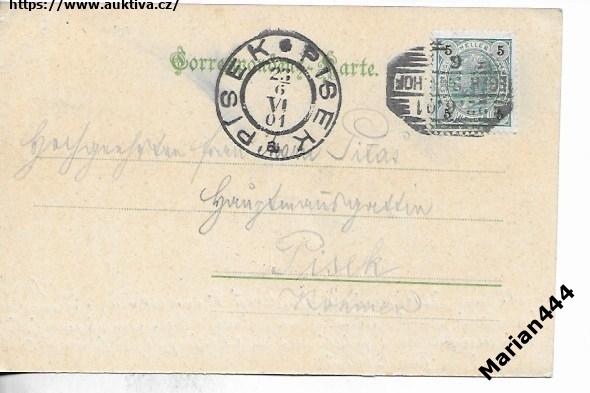 https://www.auktiva.cz/
Correspondenz-Karte.
PISEK PISEK
23
6
VI
01
5 HELLER 5
5 5
HOF
Hochgeehrten Frau
Hauptmannsgattin
Pisek
Böhmen
Marian444